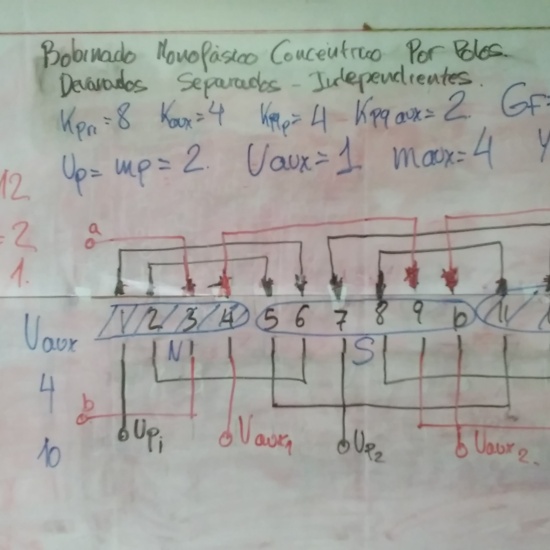 Bobinado Monofásico Concéntrico Por Polos.
Devanados Separados - Independientes.
Kpri = 8 Kaux = 4 Kpqp = 4 Kpq aux = 2 GF=
12 Up = mp = 2. Uaux = 1 maux = 4 Y
= 2
1.
a
Uaux 1 2 3 4 5 6 7 8 9 10 11
N S
4
b
10 Up1 Uaux1 Up2 Uaux2.